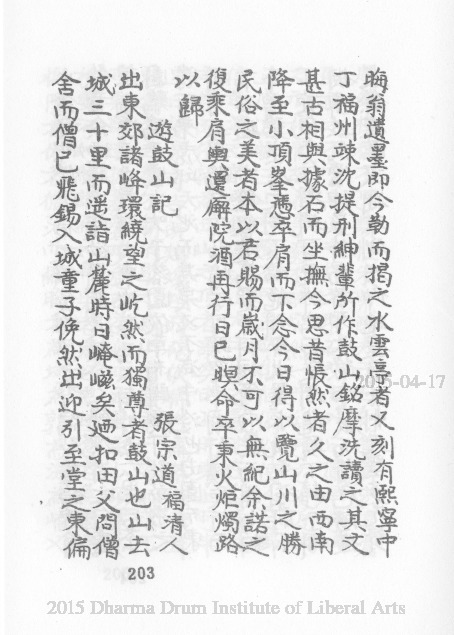 晦翁遺墨即今勒而揭之水雲亭者又刻有熙寧中
丁福州竦沈提刑紳輩所作鼓山銘摩洗讀之其文
甚古相與據石而坐撫今思昔悵然者久之由西南
降至小頂峯憑卒肩而下念今日得以覽山川之勝
民俗之美者本以君賜而歲月不可以無紀余諾之
復乘肩輿還廨院酒再行日已暝命卒秉火炬燭路
以歸
遊鼓山記
張宗道福清人
出東郊諸峰環繞望之屹然而獨尊者鼓山也山去
城三十里而遥詣山麓時日崦嵫矣廼扣田父問僧
舍而僧已飛錫入城童子俛然出迎引至堂之東偏
203
2015-04-17
2015 Dharma Drum Institute of Liberal Arts